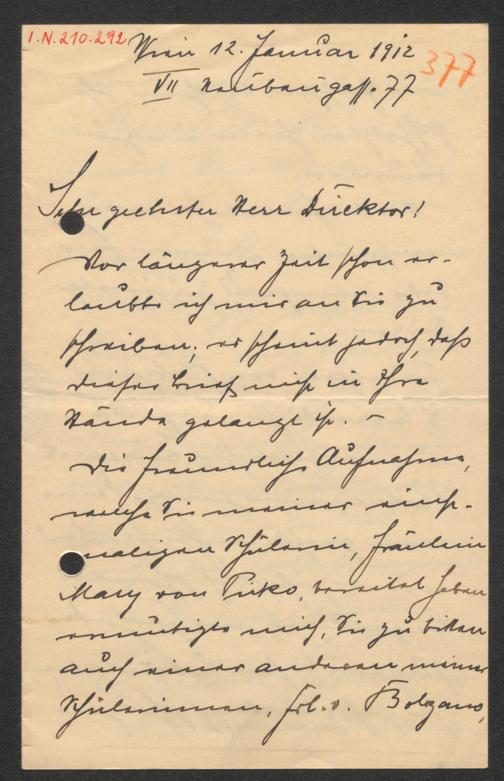 I.N. 210.292
Wien 12. Januar 1912
377
VII Neubaugasse 77
Sehr geehrter Herr Direktor!
Vor längerer Zeit schon er-
laubte ich mir an Sie zu
schreiben; es scheint jedoch, daß
dieser Brief nicht in Ihre
Hände gelangt ist. –
Die freundliche Aufnahme,
welche Sie meiner einst-
maligen Schülerin, Fräulein
Mary von Pirko, bereitet haben
ermutigte mich, Sie zu bitten
auch einer anderen meiner
Schülerinnen, Frl. v. Bolzano,